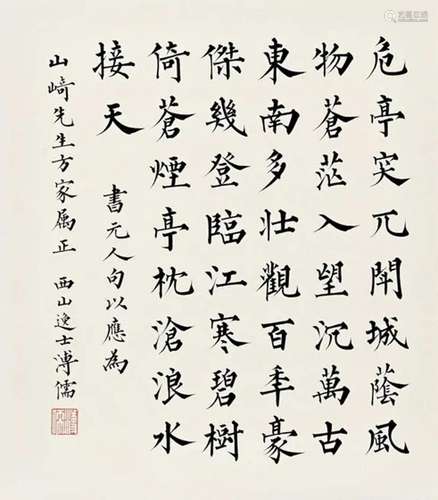 危亭突兀閈城蔭風
物蒼茫入望沉萬古
東南多壯觀百年豪
傑幾登臨江寒碧樹
倚蒼煙亭枕滄浪水
接天
書元人句以應為
山崎先生方家属正 西山逸士溥儒